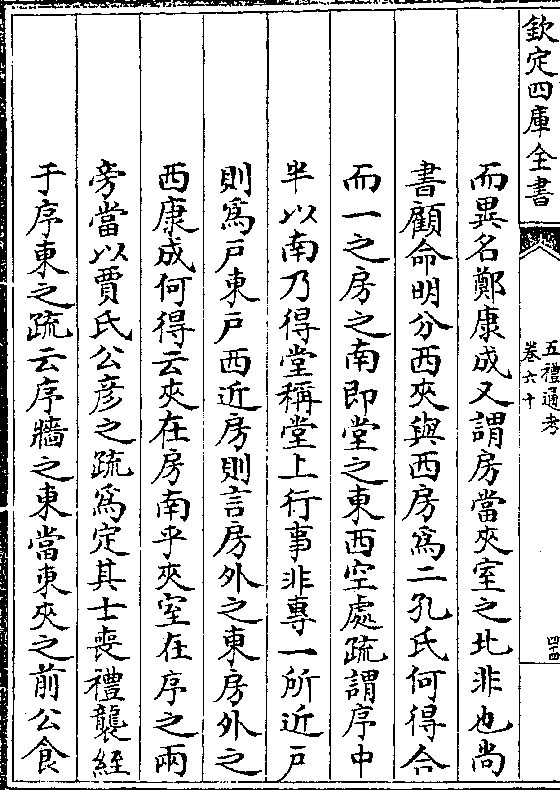 欽定四庫全書
五禮通考
卷六十
四十四
而異名鄭康成又謂房當夾室之北非也尚
書顧命明分西夾與西房爲二孔氏何得合
而一之房之南即堂之東西空處疏謂序中
半以南乃得堂稱堂上行事非專一所近戶
則爲戶東戶西近房則言房外之東房外之
西康成何得云夾在房南乎夾室在序之兩
旁當以賈氏公彦之疏爲定其士喪禮襲絰
于序東之疏云序牆之東當東夾之前公食